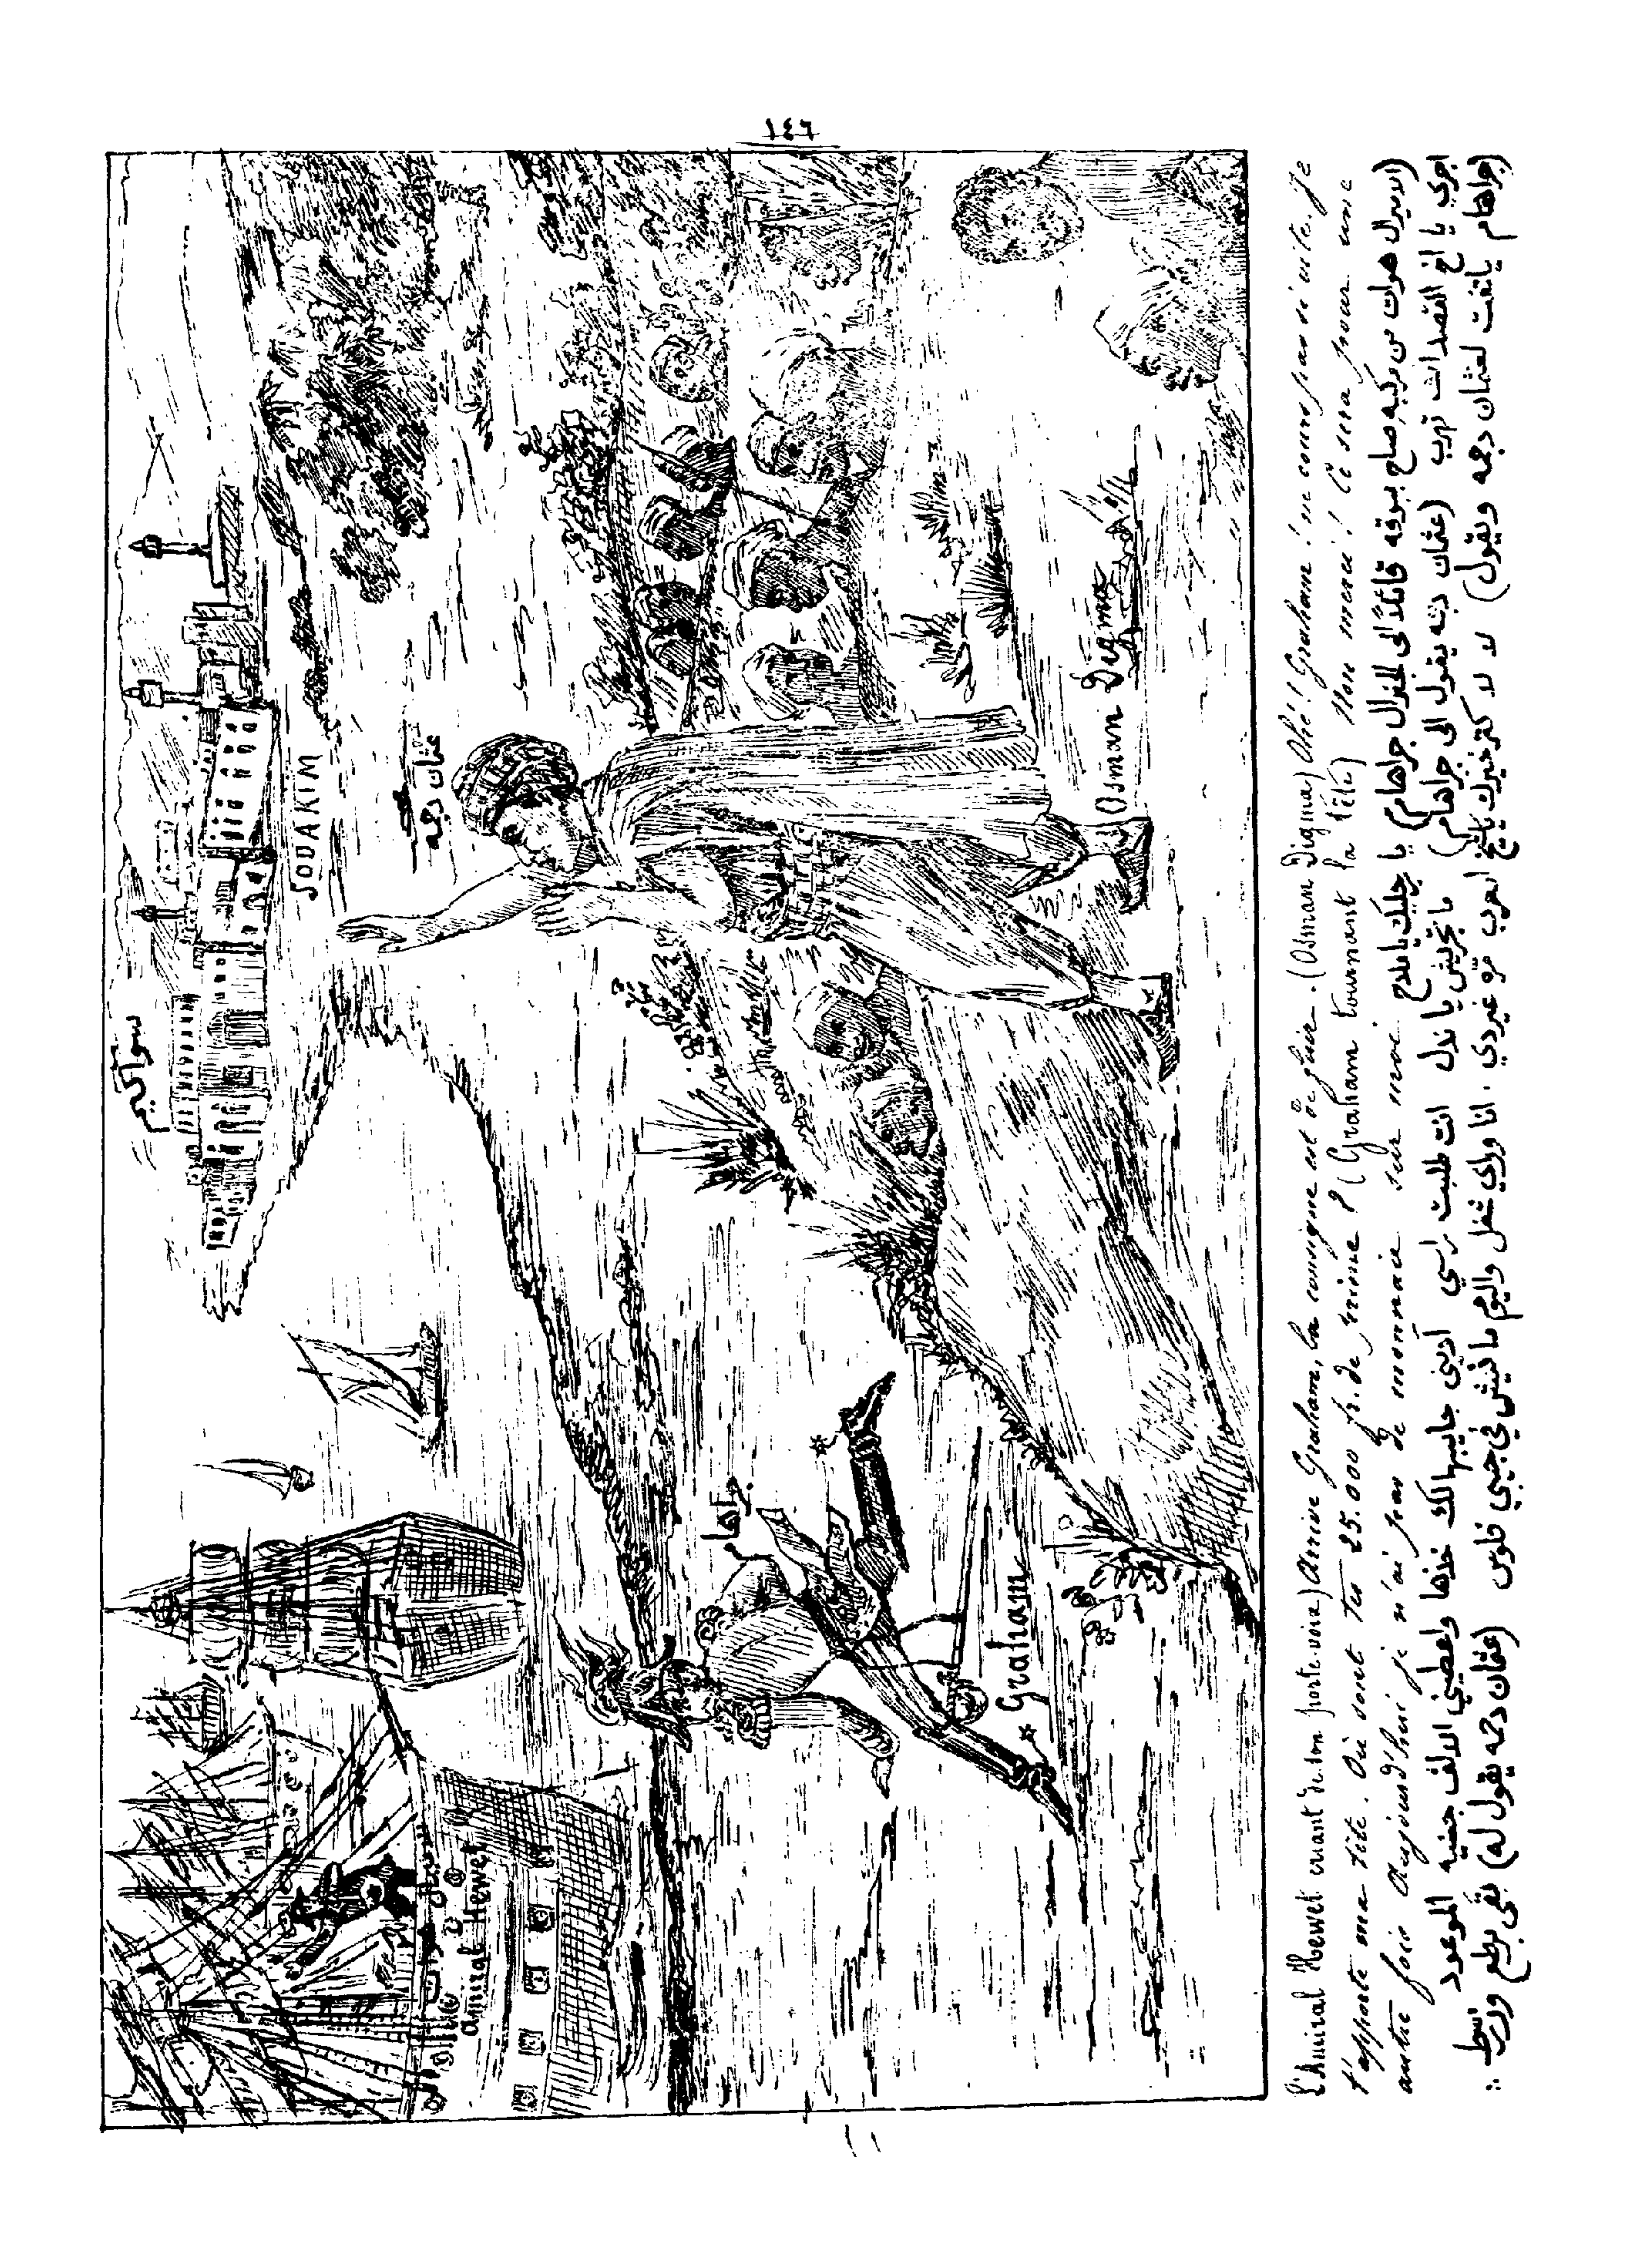 ١٤٦
سواكيم
SOUAKIM
عثمان دجمه
Osman Digma
جراهام
Graham
amiral Hewet
L'Amiral Hewet criant de son porte-voix) Arrive Graham, la consigne est de fuir. (Osman Digma) Ohé! Graham! ne cours pas si vite. Je
t'apporte ma tête. Où sont tes 25.000 fr. de prime? (Graham tournant la tête) Non merci! Ce sera pour une
autre fois Aujourd'hui je n'ai pas de monnaie sur moi.
(الاميرال هوات من مركبه صاح ببوقه قائلاً الى الجنرال جراهام) يا جليك يا ملاح
اجري يا اخ القصد انك تهرب (عثمان دجمه يقول الى جراهام) ما تجريش يا ندل انت طلبت راسي آديني جايبها لك خذها واعطيني الالف جنيه الموعود
(جراهام يلتفت لعثمان دجمه ويقول) لا لا كترخيرك يا شيخ العرب مره غير دي . انا وراي شغل واليوم ما فيش في جيبي فلوس (عثمان دجمه يقول له) بقى برطع